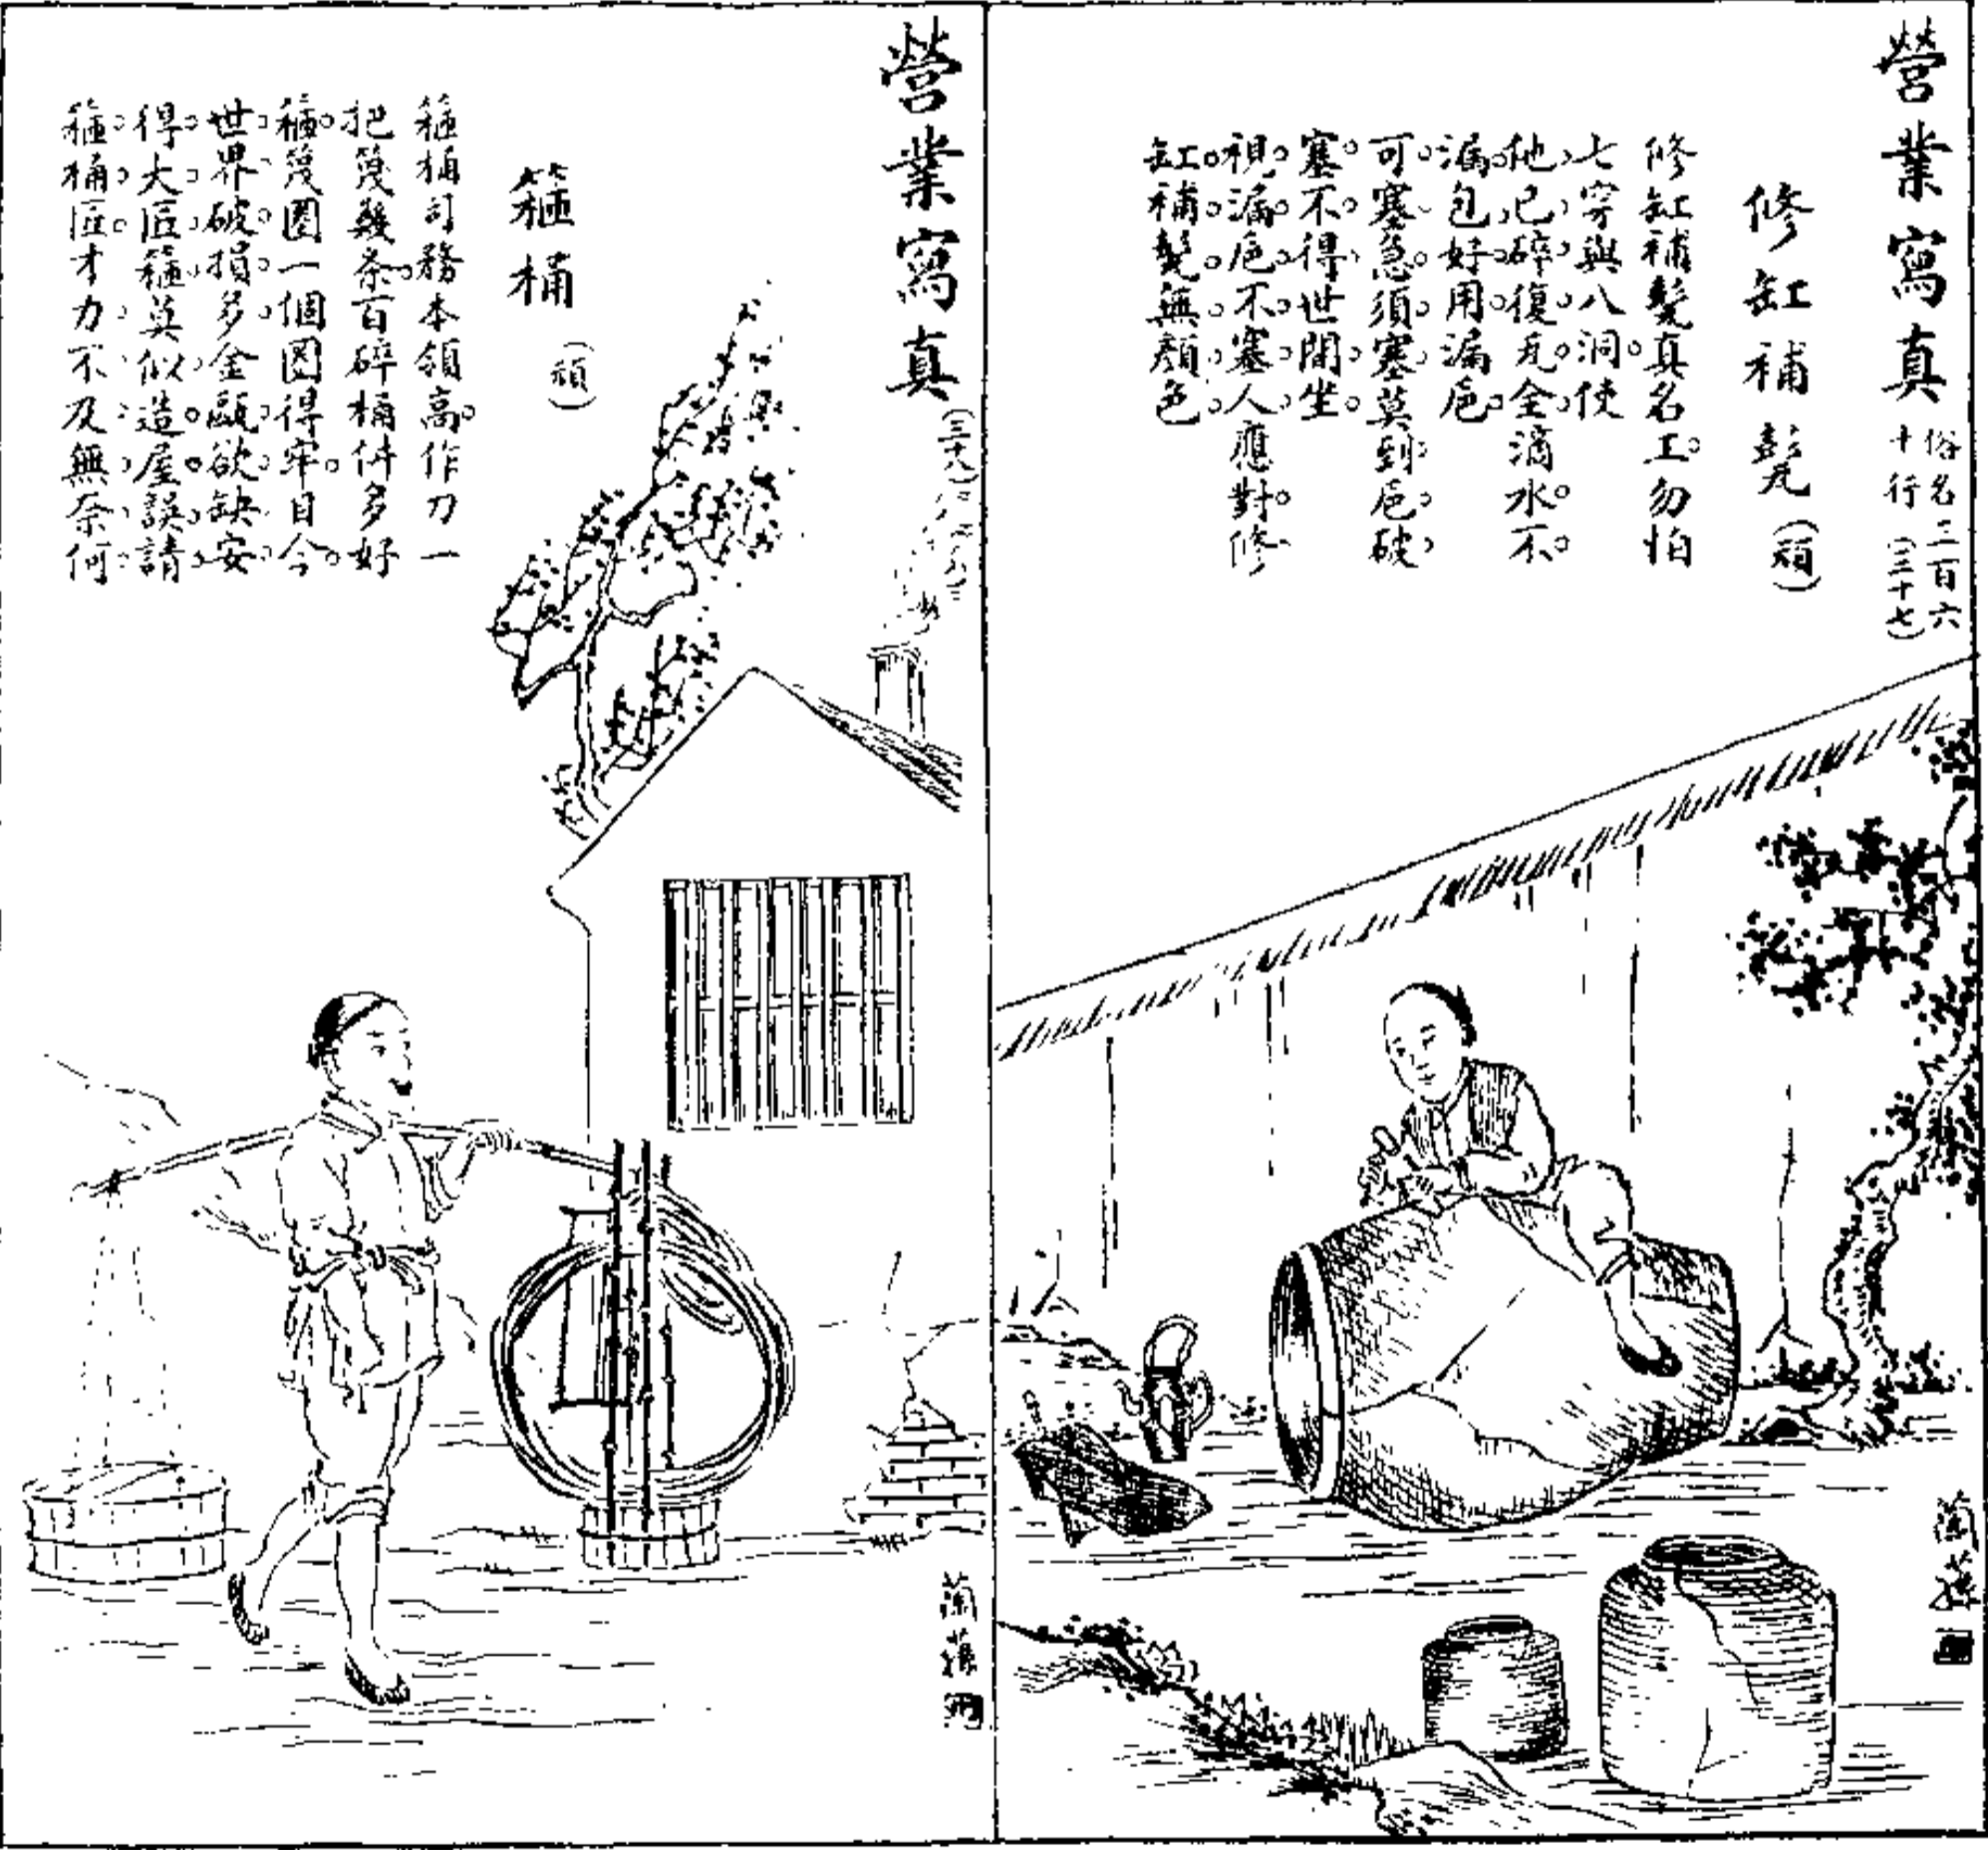 營業寫真
俗名三百六
十行（三十七）
修缸補甏（頑）
修缸補甏真名工勿怕
七穿與八洞使
他已碎復瓦全滴水不
漏包好用漏卮
可塞急須塞莫到卮破
塞不得世間坐
視漏卮不塞人應對修
缸補甏無顏色
蘭蓀
營業寫真
（三十八）
箍桶
（頑）
箍桶司務本領高作刀一
把篾幾条百碎桶件多好
箍篾圈一個圈得牢目今
世界破損多金甌欲缺安
得大匠箍莫似造屋誤請
箍桶匠才力不及無奈何
蘭蓀